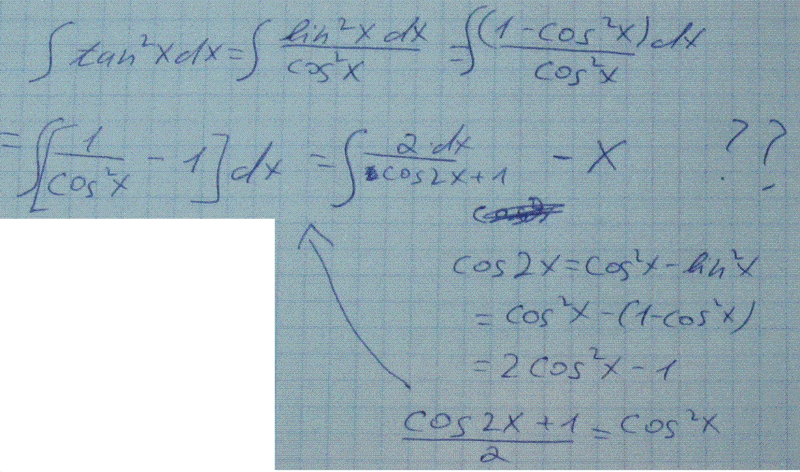 ∫ tan²x dx = ∫ sin²x dx / cos²x = ∫ (1 - cos²x) dx / cos²x
= ∫ [1 / cos²x - 1] dx = ∫ 2·dx / cos2x + 1 - x ??
cos2x = cos²x - sin²x
= cos²x - (1 - cos²x)
= 2cos²x - 1
cos2x + 1 / 2 = cos²x